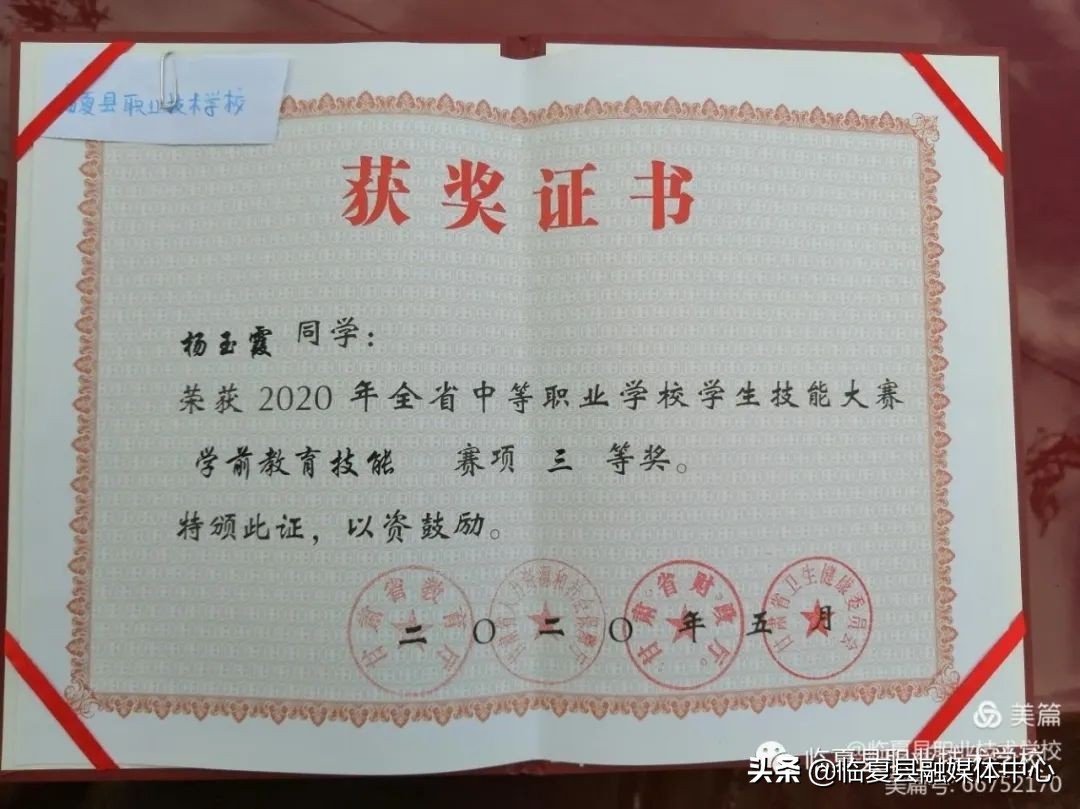 夏县职业技术学校
获奖证书
杨玉霞 同学：
荣获 2020 年全省中等职业学校学生技能大赛
学前教育技能 赛项 三 等奖。
特颁此证，以资鼓励。
甘肃省教育厅
甘肃省人力资源和社会保障厅
甘肃省财政厅
甘肃省卫生健康委员会
二〇二〇年五月
美篇
@临夏县职业技术学校
临夏县职业技术学校
头条 @临夏县融媒体中心
美篇号: 66752170